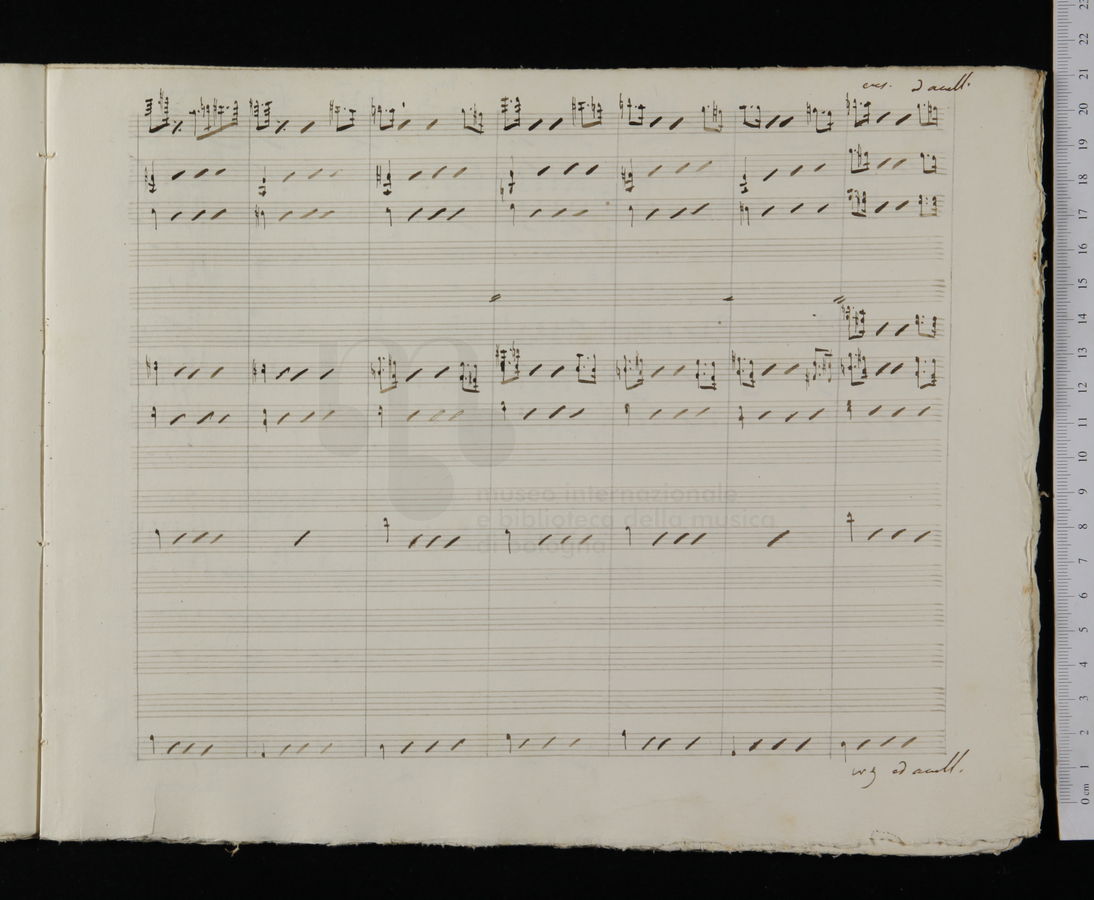 cres. ed accell.
museo internazionale
e biblioteca della musica
di bologna
ed accell.
23
22
21
20
19
18
17
16
15
14
13
12
11
10
9
8
7
6
5
4
3
2
1
0 cm